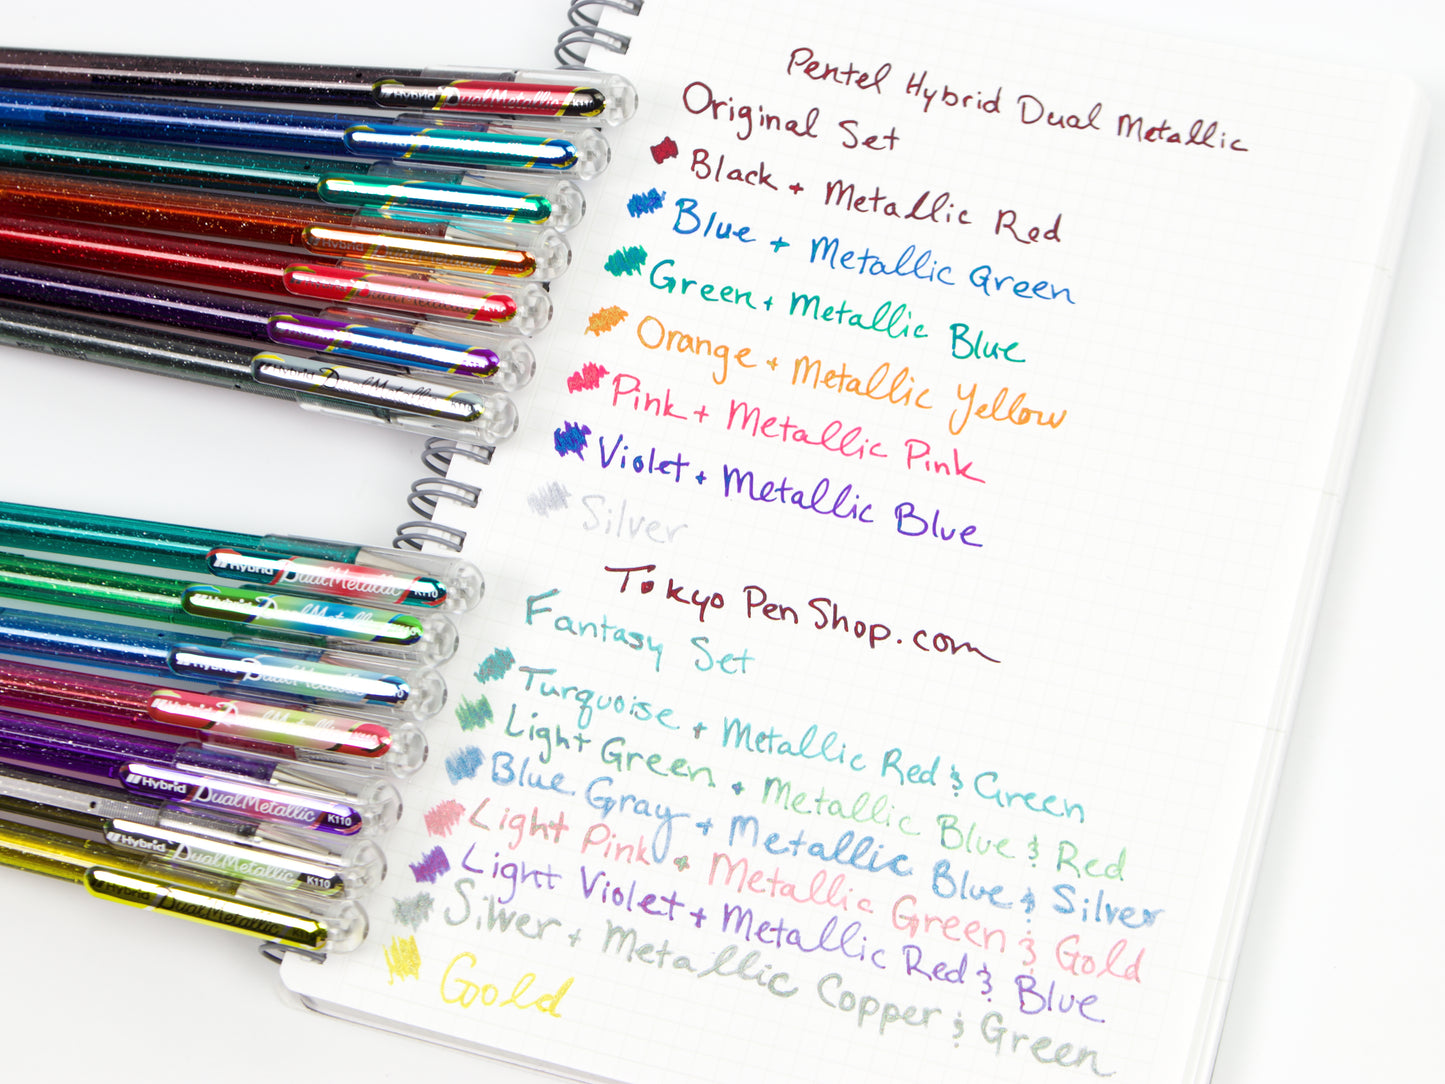 Pentel Hybrid Dual Metallic
Original Set
Black + Metallic Red
Blue + Metallic Green
Green + Metallic Blue
Orange + Metallic Yellow
Pink + Metallic Pink
Violet + Metallic Blue
Silver
TokyoPenShop.com
Fantasy Set
Turquoise + Metallic Red & Green
Light Green + Metallic Blue & Red
Blue Gray + Metallic Blue & Silver
Light Pink + Metallic Green & Gold
Light Violet + Metallic Red & Blue
Silver + Metallic Copper & Green
Gold
Hybrid DualMetallic K110
Hybrid
Hybrid DualMetallic
Hybrid DualMetallic K110
Hybrid DualMetallic
Hybrid DualMetallic
Hybrid DualMetallic
Hybrid DualMetallic K110
Hybrid DualMetallic K110
Hybrid DualMetallic